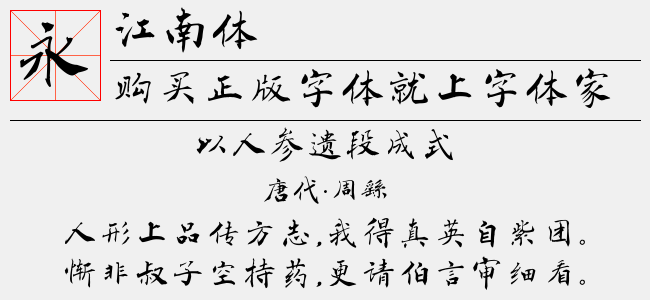 永
江南体
购买正版字体就上字体家
以人参遗段成式
唐代·周繇
人形上品传方志,我得真英自紫团。
惭非叔子空持药,更请伯言审细看。